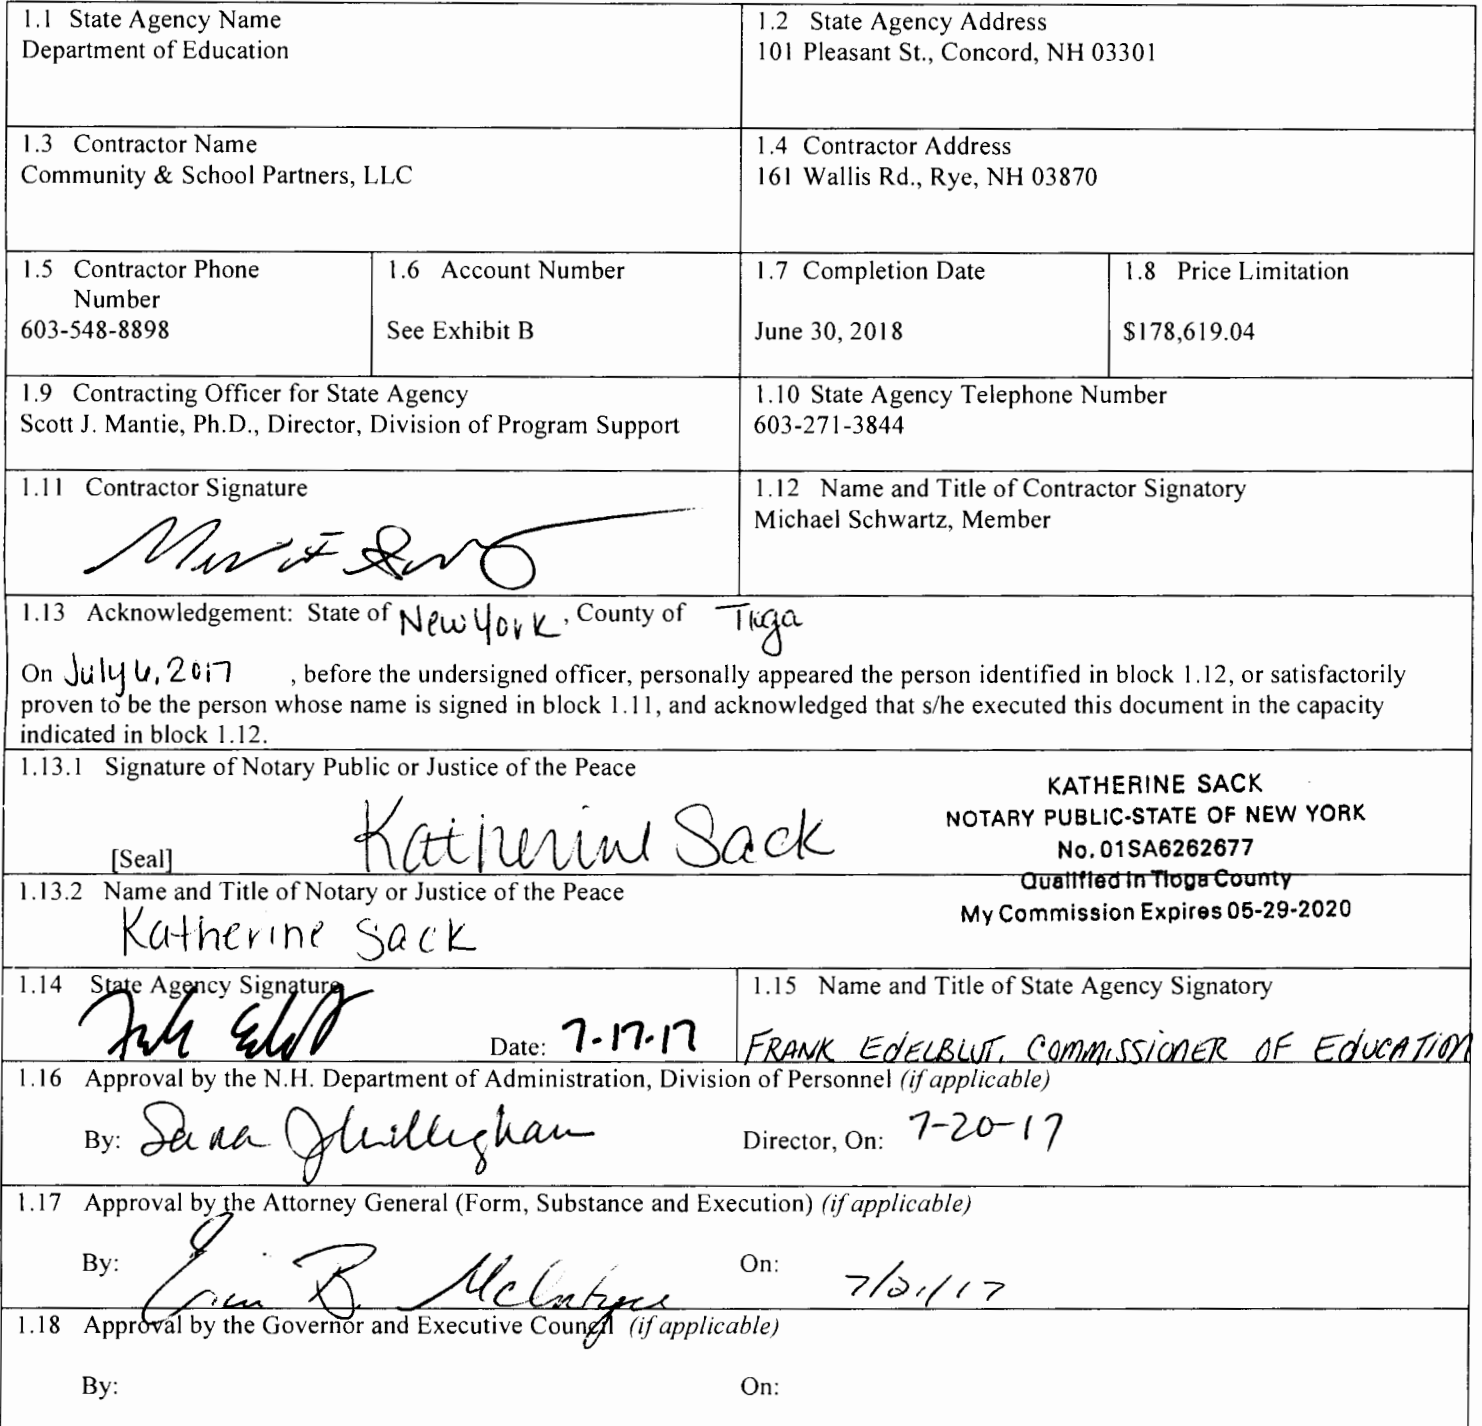 1.1 State Agency Name
Department of Education
1.2 State Agency Address
101 Pleasant St., Concord, NH 03301
1.3 Contractor Name
Community & School Partners, LLC
1.4 Contractor Address
161 Wallis Rd., Rye, NH 03870
1.5 Contractor Phone
Number
603-548-8898
1.6 Account Number
See Exhibit B
1.7 Completion Date
June 30, 2018
1.8 Price Limitation
$178,619.04
1.9 Contracting Officer for State Agency
Scott J. Mantie, Ph.D., Director, Division of Program Support
1.10 State Agency Telephone Number
603-271-3844
1.11 Contractor Signature
1.12 Name and Title of Contractor Signatory
Michael Schwartz, Member
1.13 Acknowledgement: State of New York, County of Tioga
On July 6, 2017, before the undersigned officer, personally appeared the person identified in block 1.12, or satisfactorily
proven to be the person whose name is signed in block 1.11, and acknowledged that s/he executed this document in the capacity
indicated in block 1.12.
1.13.1 Signature of Notary Public or Justice of the Peace
Katherine Sack
[Seal]
KATHERINE SACK
NOTARY PUBLIC-STATE OF NEW YORK
No. 01SA6262677
Qualified in Tioga County
My Commission Expires 05-29-2020
1.13.2 Name and Title of Notary or Justice of the Peace
Katherine Sack
1.14 State Agency Signature
Date: 7-17-17
1.15 Name and Title of State Agency Signatory
FRANK EDELBLUT, COMMISSIONER OF EDUCATION
1.16 Approval by the N.H. Department of Administration, Division of Personnel (if applicable)
By: Director, On: 7-20-17
1.17 Approval by the Attorney General (Form, Substance and Execution) (if applicable)
By: B. McIntyre On: 7/21/17
1.18 Approval by the Governor and Executive Council (if applicable)
By: On: